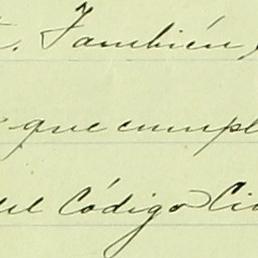 También
que cumpl
del Código Ci